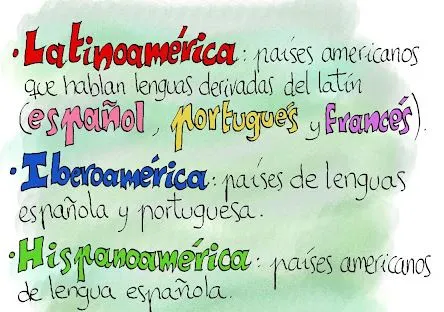 · Latinoamérica: países americanos
que hablan lenguas derivadas del latín
(español, portugués y francés).
· Iberoamérica: países de lenguas
española y portuguesa.
· Hispanoamérica: países americanos
de lengua española.